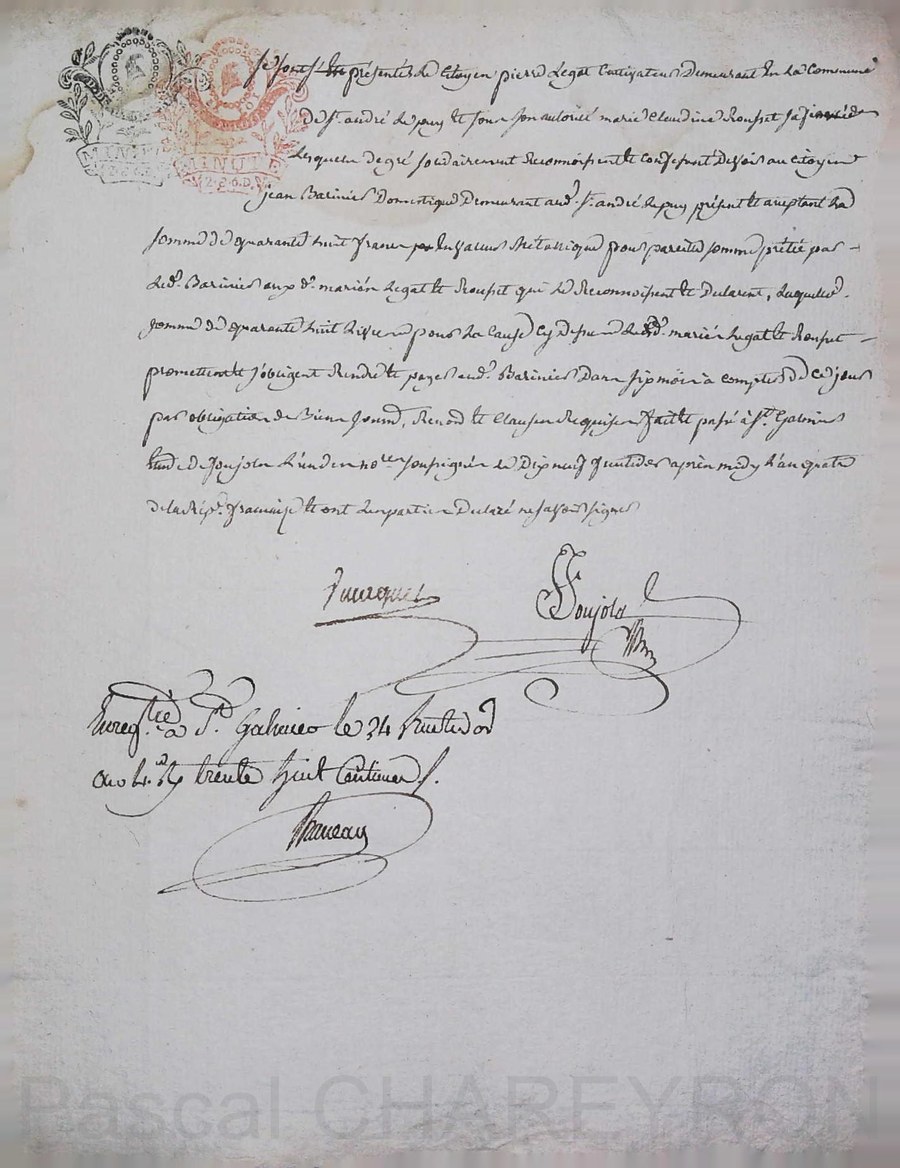 MINUTE
2.S.6.D.
MINUTE
2.S.6.D.
Se sont présentés le Citoyen pierre Legat Cultivateur Demeurant En La Commune
De St. andré Le puy Et sous son autorité marie Claudine Rousset sa
Lesquels de gré solidairement Reconnoissent Et Confessent Devoir au Citoyen
jean Barinier Domestique Demeurant aud. St. andré Le puy présent Et aceptant La
somme de quarante huit francs En valeur Metallique pour pareille somme prétée par
Led. Barinier aux d. mariés Legat Et Rousset qui Le Reconnoissent Et Declarent, Laquelle
somme de quarante huit Livres pour La Cause Cy Dessus Lesd. mariés Legat Et Rousset
promettent Et s'obligent Rendre Et payer aud. Barinier Dans six mois à Compter De Ce jour
par obligation de Biens, Renond. Et Clauses Requises fait Et passé à St. Galmier
Etude de Soujols L'un des no.res soussignés Le Dix neuf fructidor après midy L'an quatre
de La Rep. francaise Et ont Les parties Declaré ne savoir signer
Soujols
Enregtré à St. Galmier le 24 fructidor
an 4. trente huit Centimes
Pascal CHAREYRON